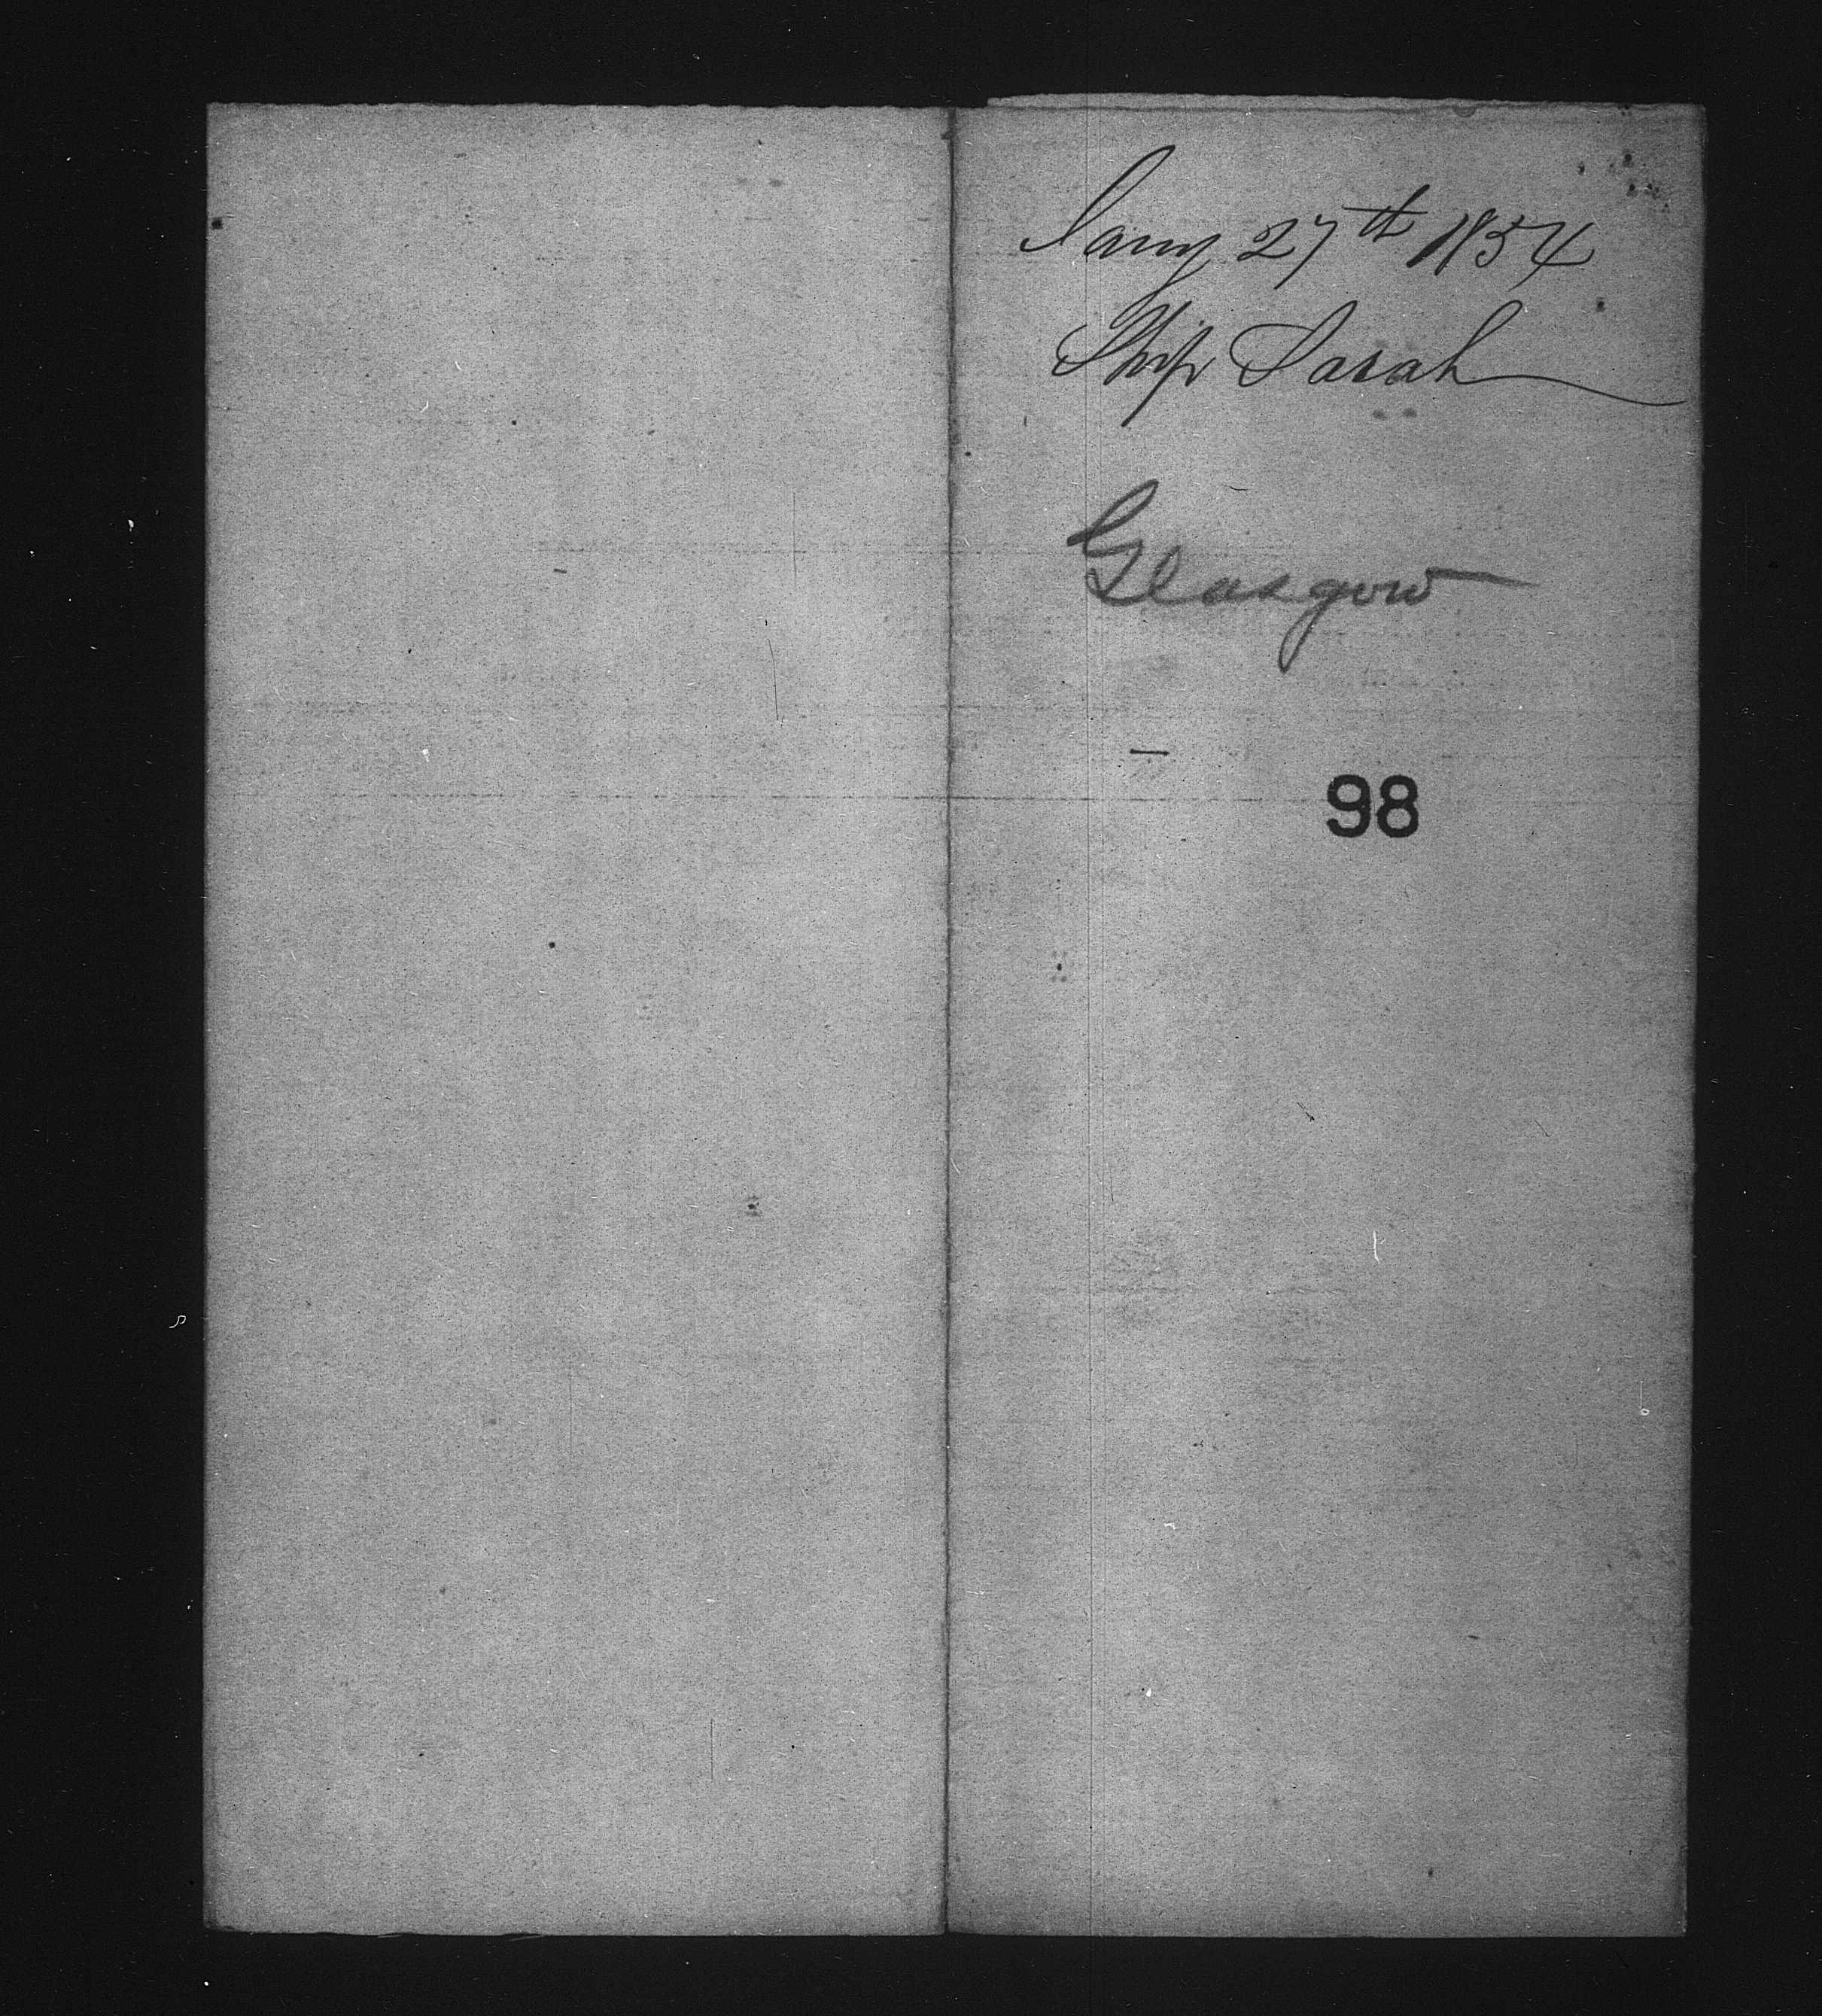 Jany 27th 1854
Ship Sarah
Glasgow
98